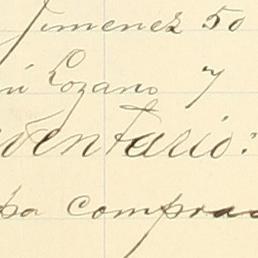 Jimenez 50
Lozano 7
ventario:
pa compra